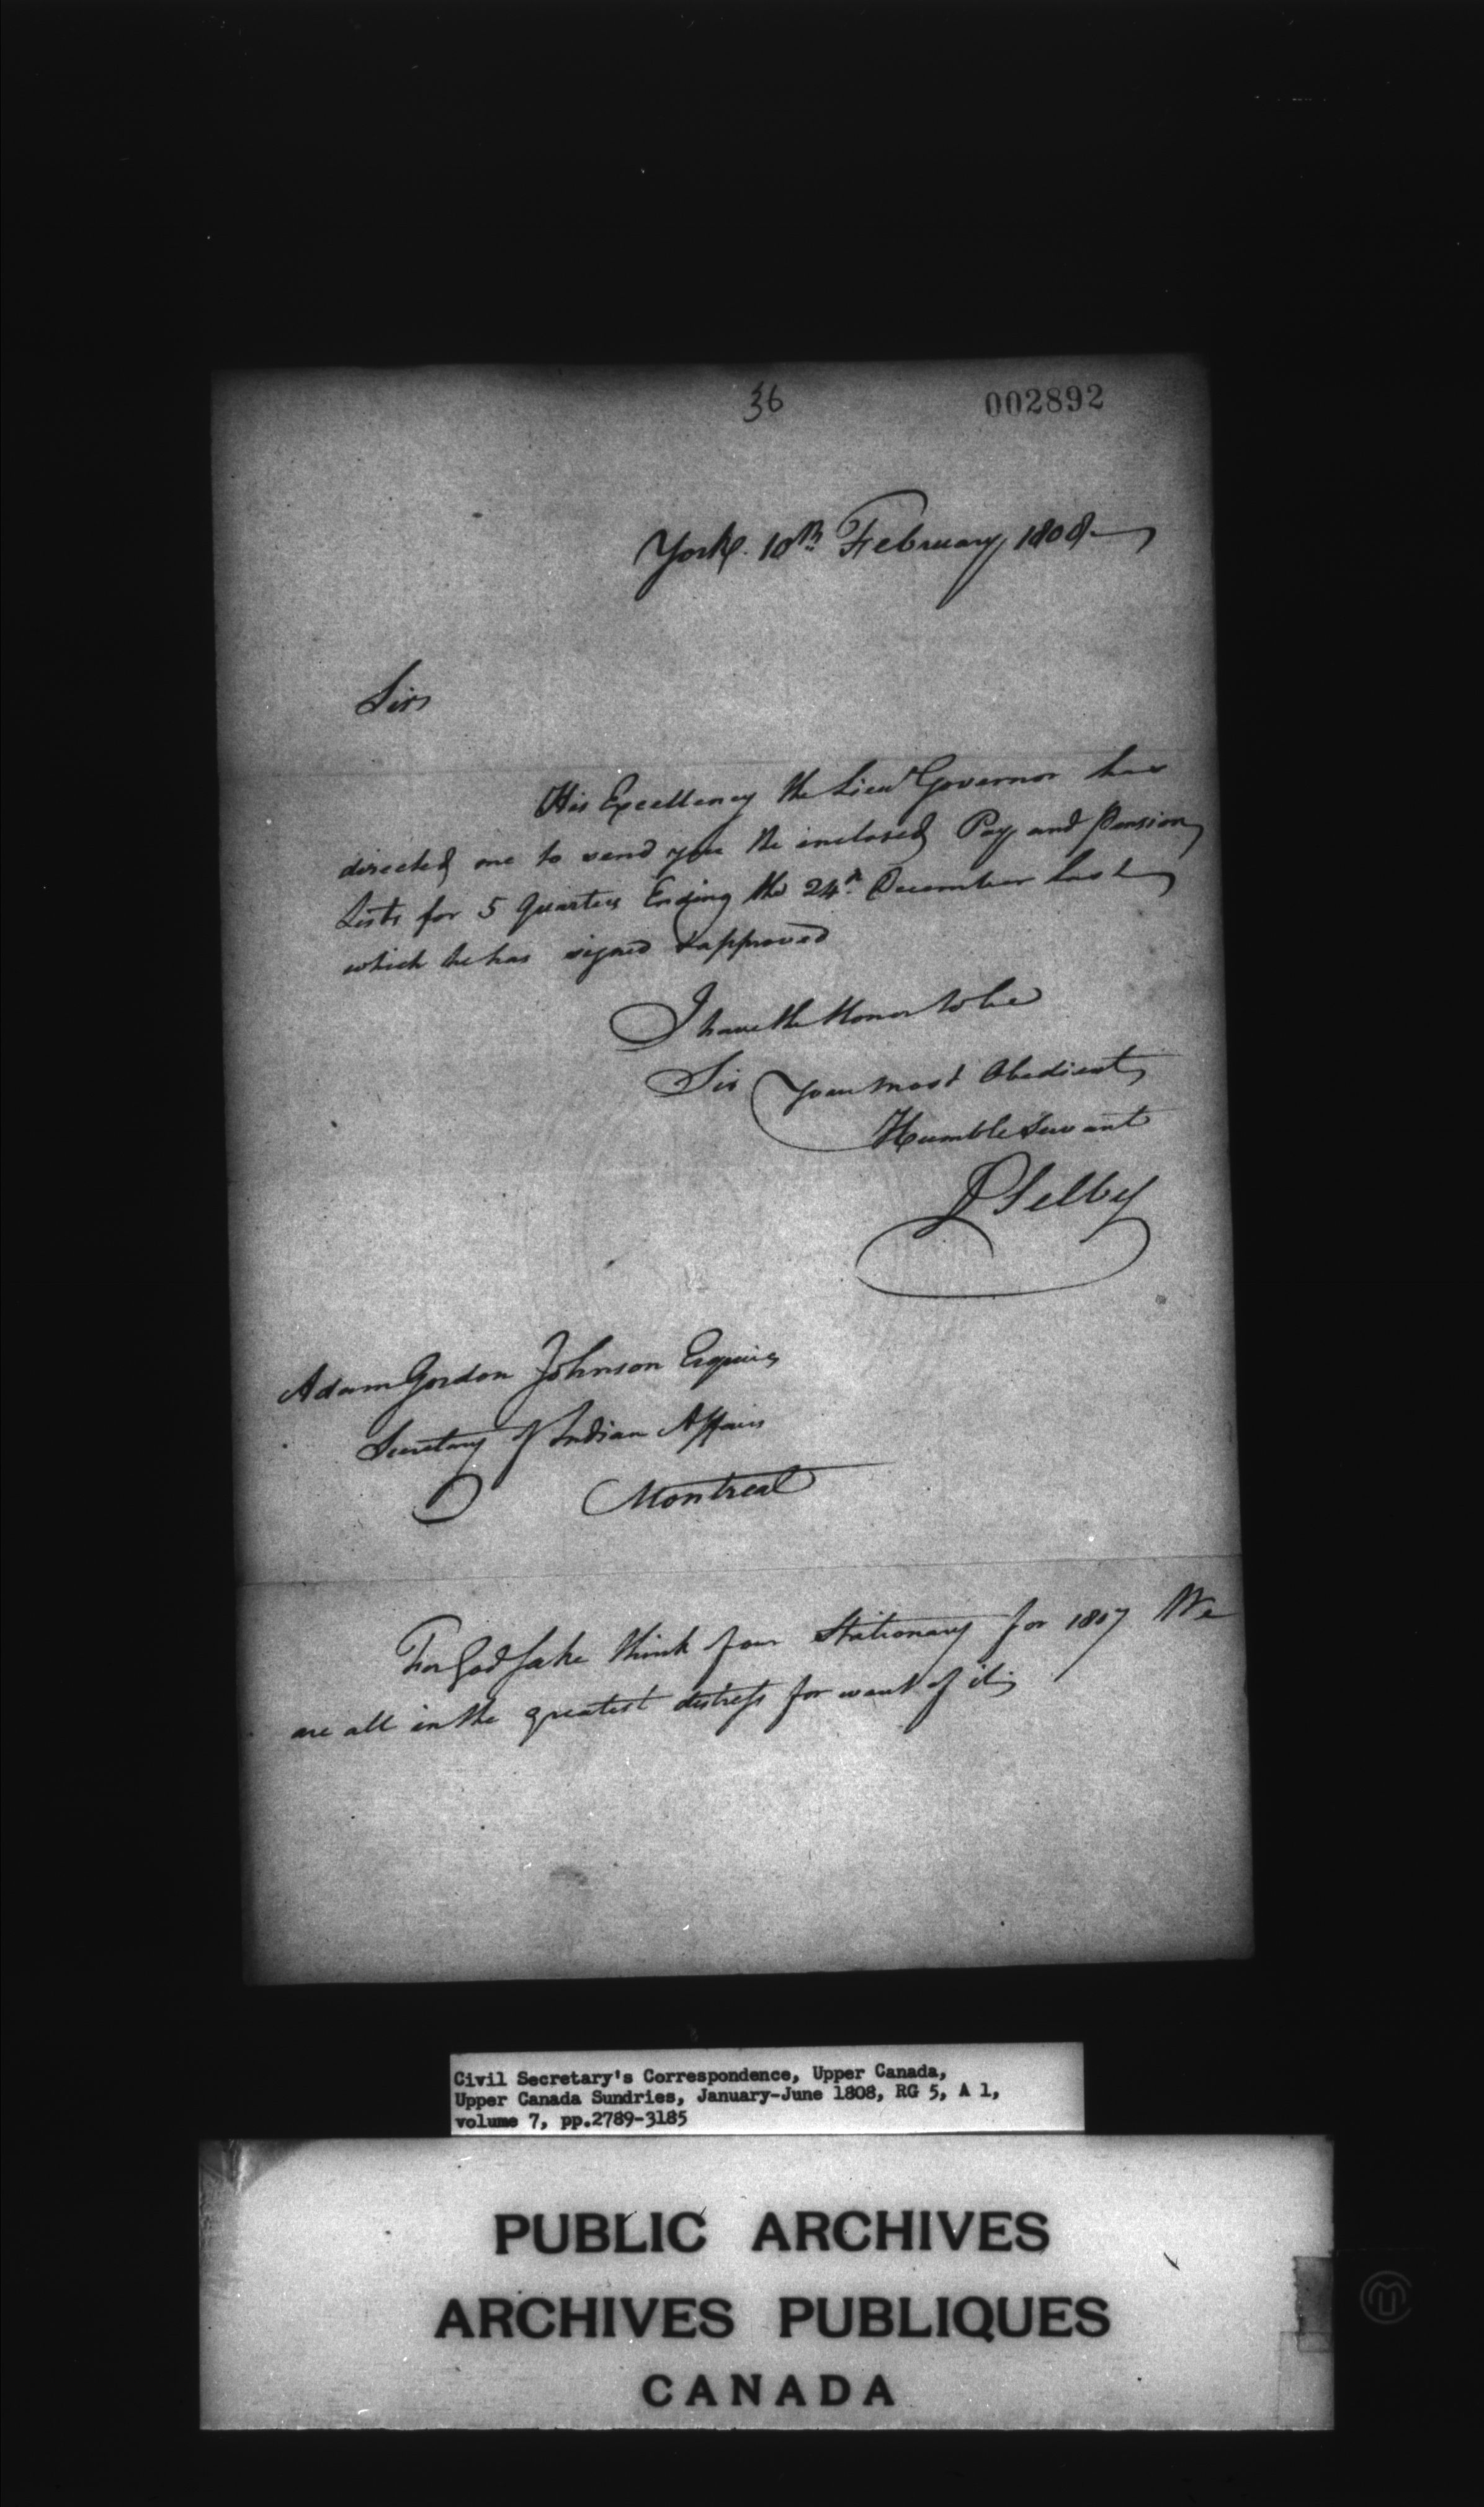 36
002892
York 10th February 1808
Sir
His Excellency the Lieut Governor has
directed me to send you the inclosed Pay and Pension
Lists for 5 Quarters Ending the 24th December last
which he has signed & approved
I have the Honor to be
Sir Your most Obedient
Humble Servant
P Selby
Adam Gordon Johnson Esquire
Secretary of Indian Affairs
Montreal
For God sake think of our Stationary for 1807 We
are all in the greatest distress for want of it
Civil Secretary's Correspondence, Upper Canada,
Upper Canada Sundries, January-June 1808, RG 5, A 1,
volume 7, pp.2789-3185
PUBLIC ARCHIVES
ARCHIVES PUBLIQUES
CANADA